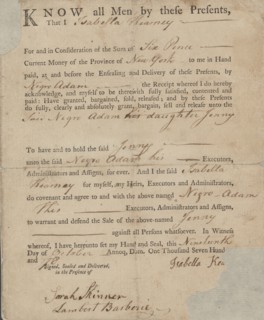 KNOW all Men by these Presents,
That I Isabella Kearney
For and in Consideration of the Sum of Six Pence
Current Money of the Province of New York to me in Hand
paid, at and before the Ensealing and Delivery of these Presents, by
Negro Adam the Receipt whereof I do hereby
acknowledge, and myself to be therewith fully satisfied, contented and
paid: Have granted, bargained, sold, released; and by these Presents
do fully, clearly and absolutely grant, bargain, sell and release unto the
Said Negro Adam his daughter Jenny
To have and to hold the said Jenny
unto the said Negro Adam his Executors,
Administrators and Assigns, for ever. And I the said Isabella
Kearney for myself, my Heirs, Executors and Administrators
do covenant and agree to and with the above named Negro Adam
his Executors, Administrators and Assigns,
to warrant and defend the Sale of the above-named Jenny
against all Persons whatsoever. In Witness
whereof, I have hereunto set my Hand and Seal, this
Day of October Annoq. Dom. One Thousand Seven Hund
Signed, Sealed and Delivered,
in the Presence of
Isabella Kea
Sarah Skinner
Lambert Barberie